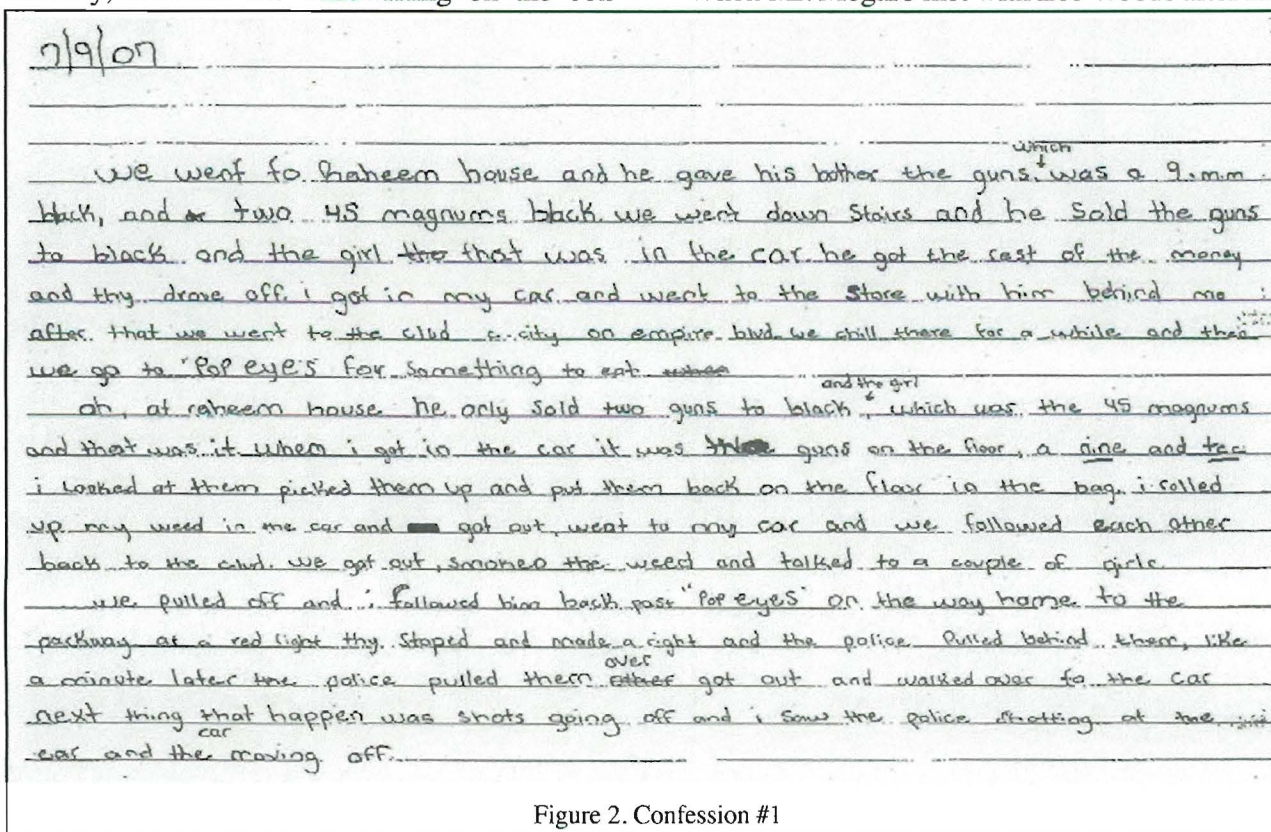 7/9/07
which
we went to Raheem house and he gave his bother the guns. was a 9.m.m
black, and two 45 magnums black. we went down Stairs and he Sold the guns
to black and the girl the that was in the car. he got the rest of the money
and thy drove off. i got in my car and went to the store with him behind me
after that we went to the clud c.city on empire blvd. we chill there for a while and then
we go to "POP eyes" for something to eat when
and the girl
oh, at raheem house he only sold two guns to black, which was the 45 magnums
and that was it. when i got in the car it was guns on the floor, a nine and tec
i looked at them picked them up and put them back on the floor in the bag. i rolled
up my weed in the car and got out, went to my car and we followed each other
back to the clud. we got out, smoked the weed and talked to a couple of girls
we pulled off and i followed him back past "Pop eyes" on the way home to the
parkway at a red light thy stoped and made a right and the police Pulled behind them, like
over
a minute later the police pulled them other got out and walked over to the car
next thing that happen was shots going off and i saw the police shotting at the
car
car and the moving off.
Figure 2. Confession #1